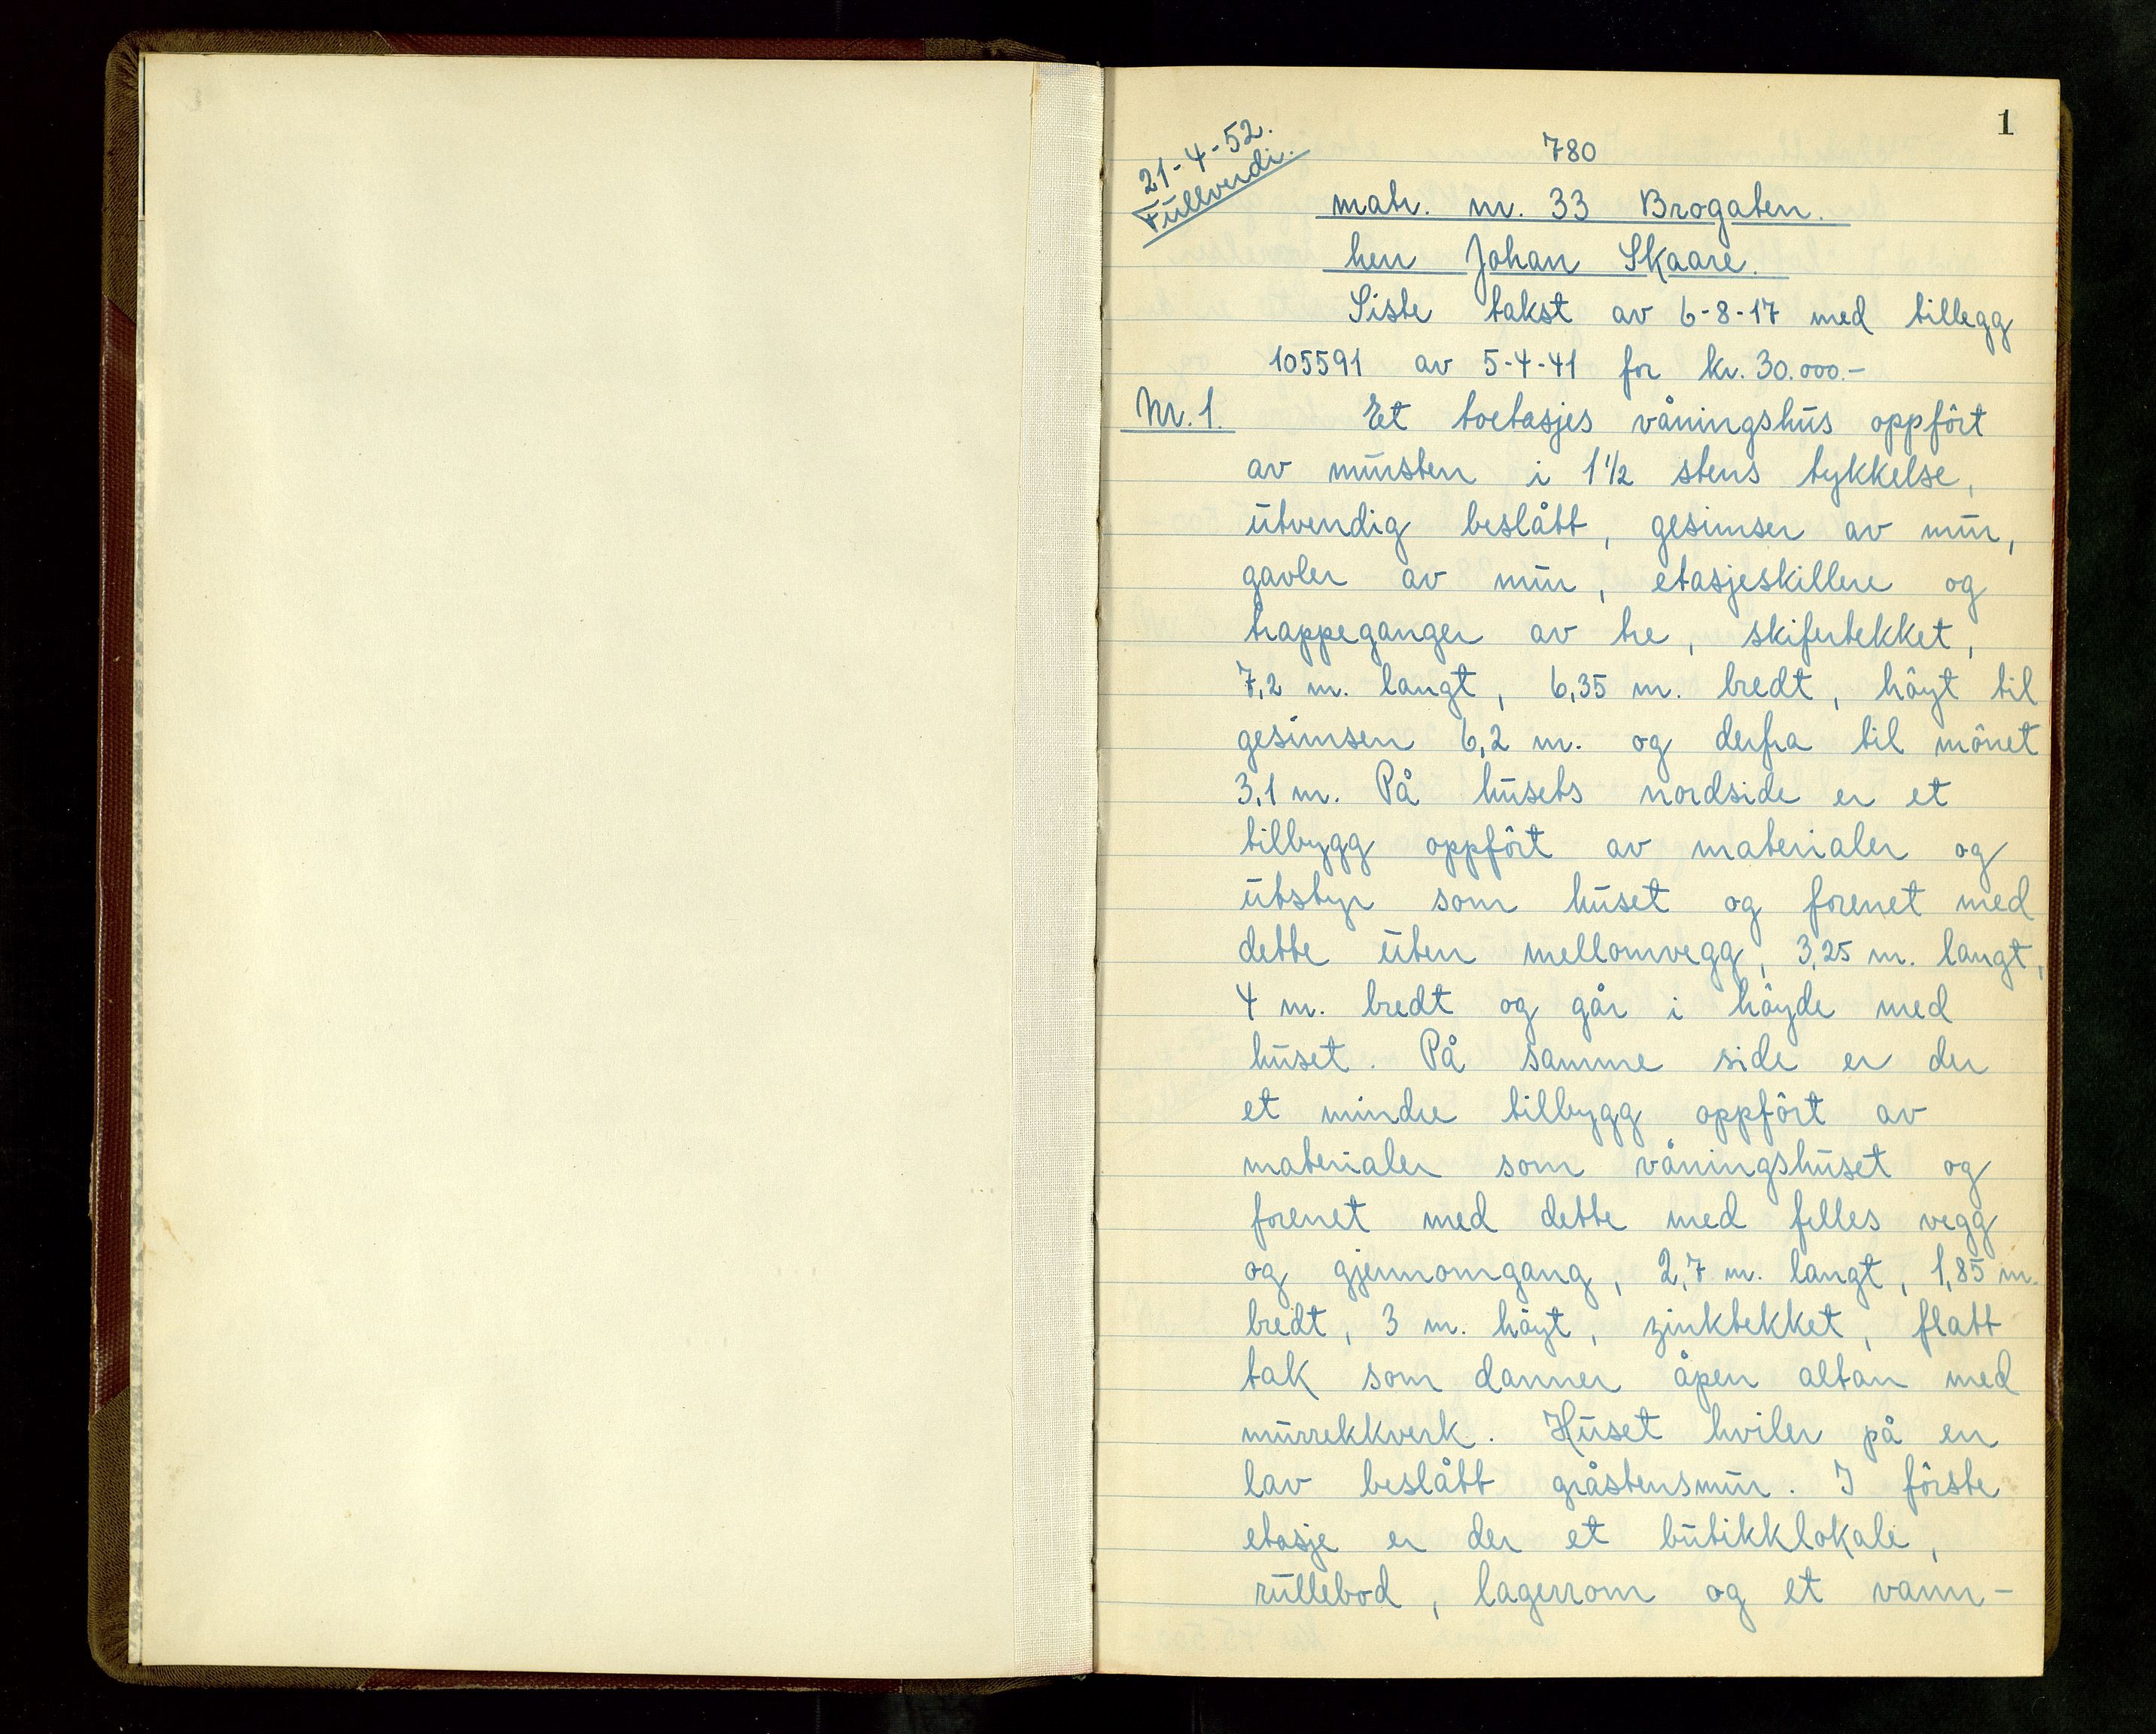 1
21-4-52.
Fullverdi.
780
matr. nr. 33 Brogaten.
herr Johan Skaare.
Siste takst av 6-8-17 med tillegg
105591 av 5-4-41 for kr. 30.000.-
Nr. 1. Et toetasjes våningshus oppført
av mursten i 1 1/2 stens tykkelse,
utvendig beslått, gesimser av mur,
gavler av mur, etasjeskillere og
trappeganger av tre, skifertekket,
7,2 m. langt, 6,35 m. bredt, høyt til
gesimsen 6,2 m. og derfra til mønet
3,1 m. På husets nordside er et
tilbygg oppført av materialer og
utstyr som huset og forenet med
dette uten mellomvegg, 3,25 m. langt,
4 m. bredt og går i høyde med
huset. På samme side er der
et mindre tilbygg oppført av
materialer som våningshuset og
forenet med dette med felles vegg
og gjennomgang, 2,7 m. langt, 1,85 m.
bredt, 3 m. høyt, zinktekket, flatt
tak som danner åpen altan med
murrekkverk. Huset hviler på en
lav beslått gråstensmur. I første
etasje er der et butikklokale,
rullebod, lagerrom og et vann-